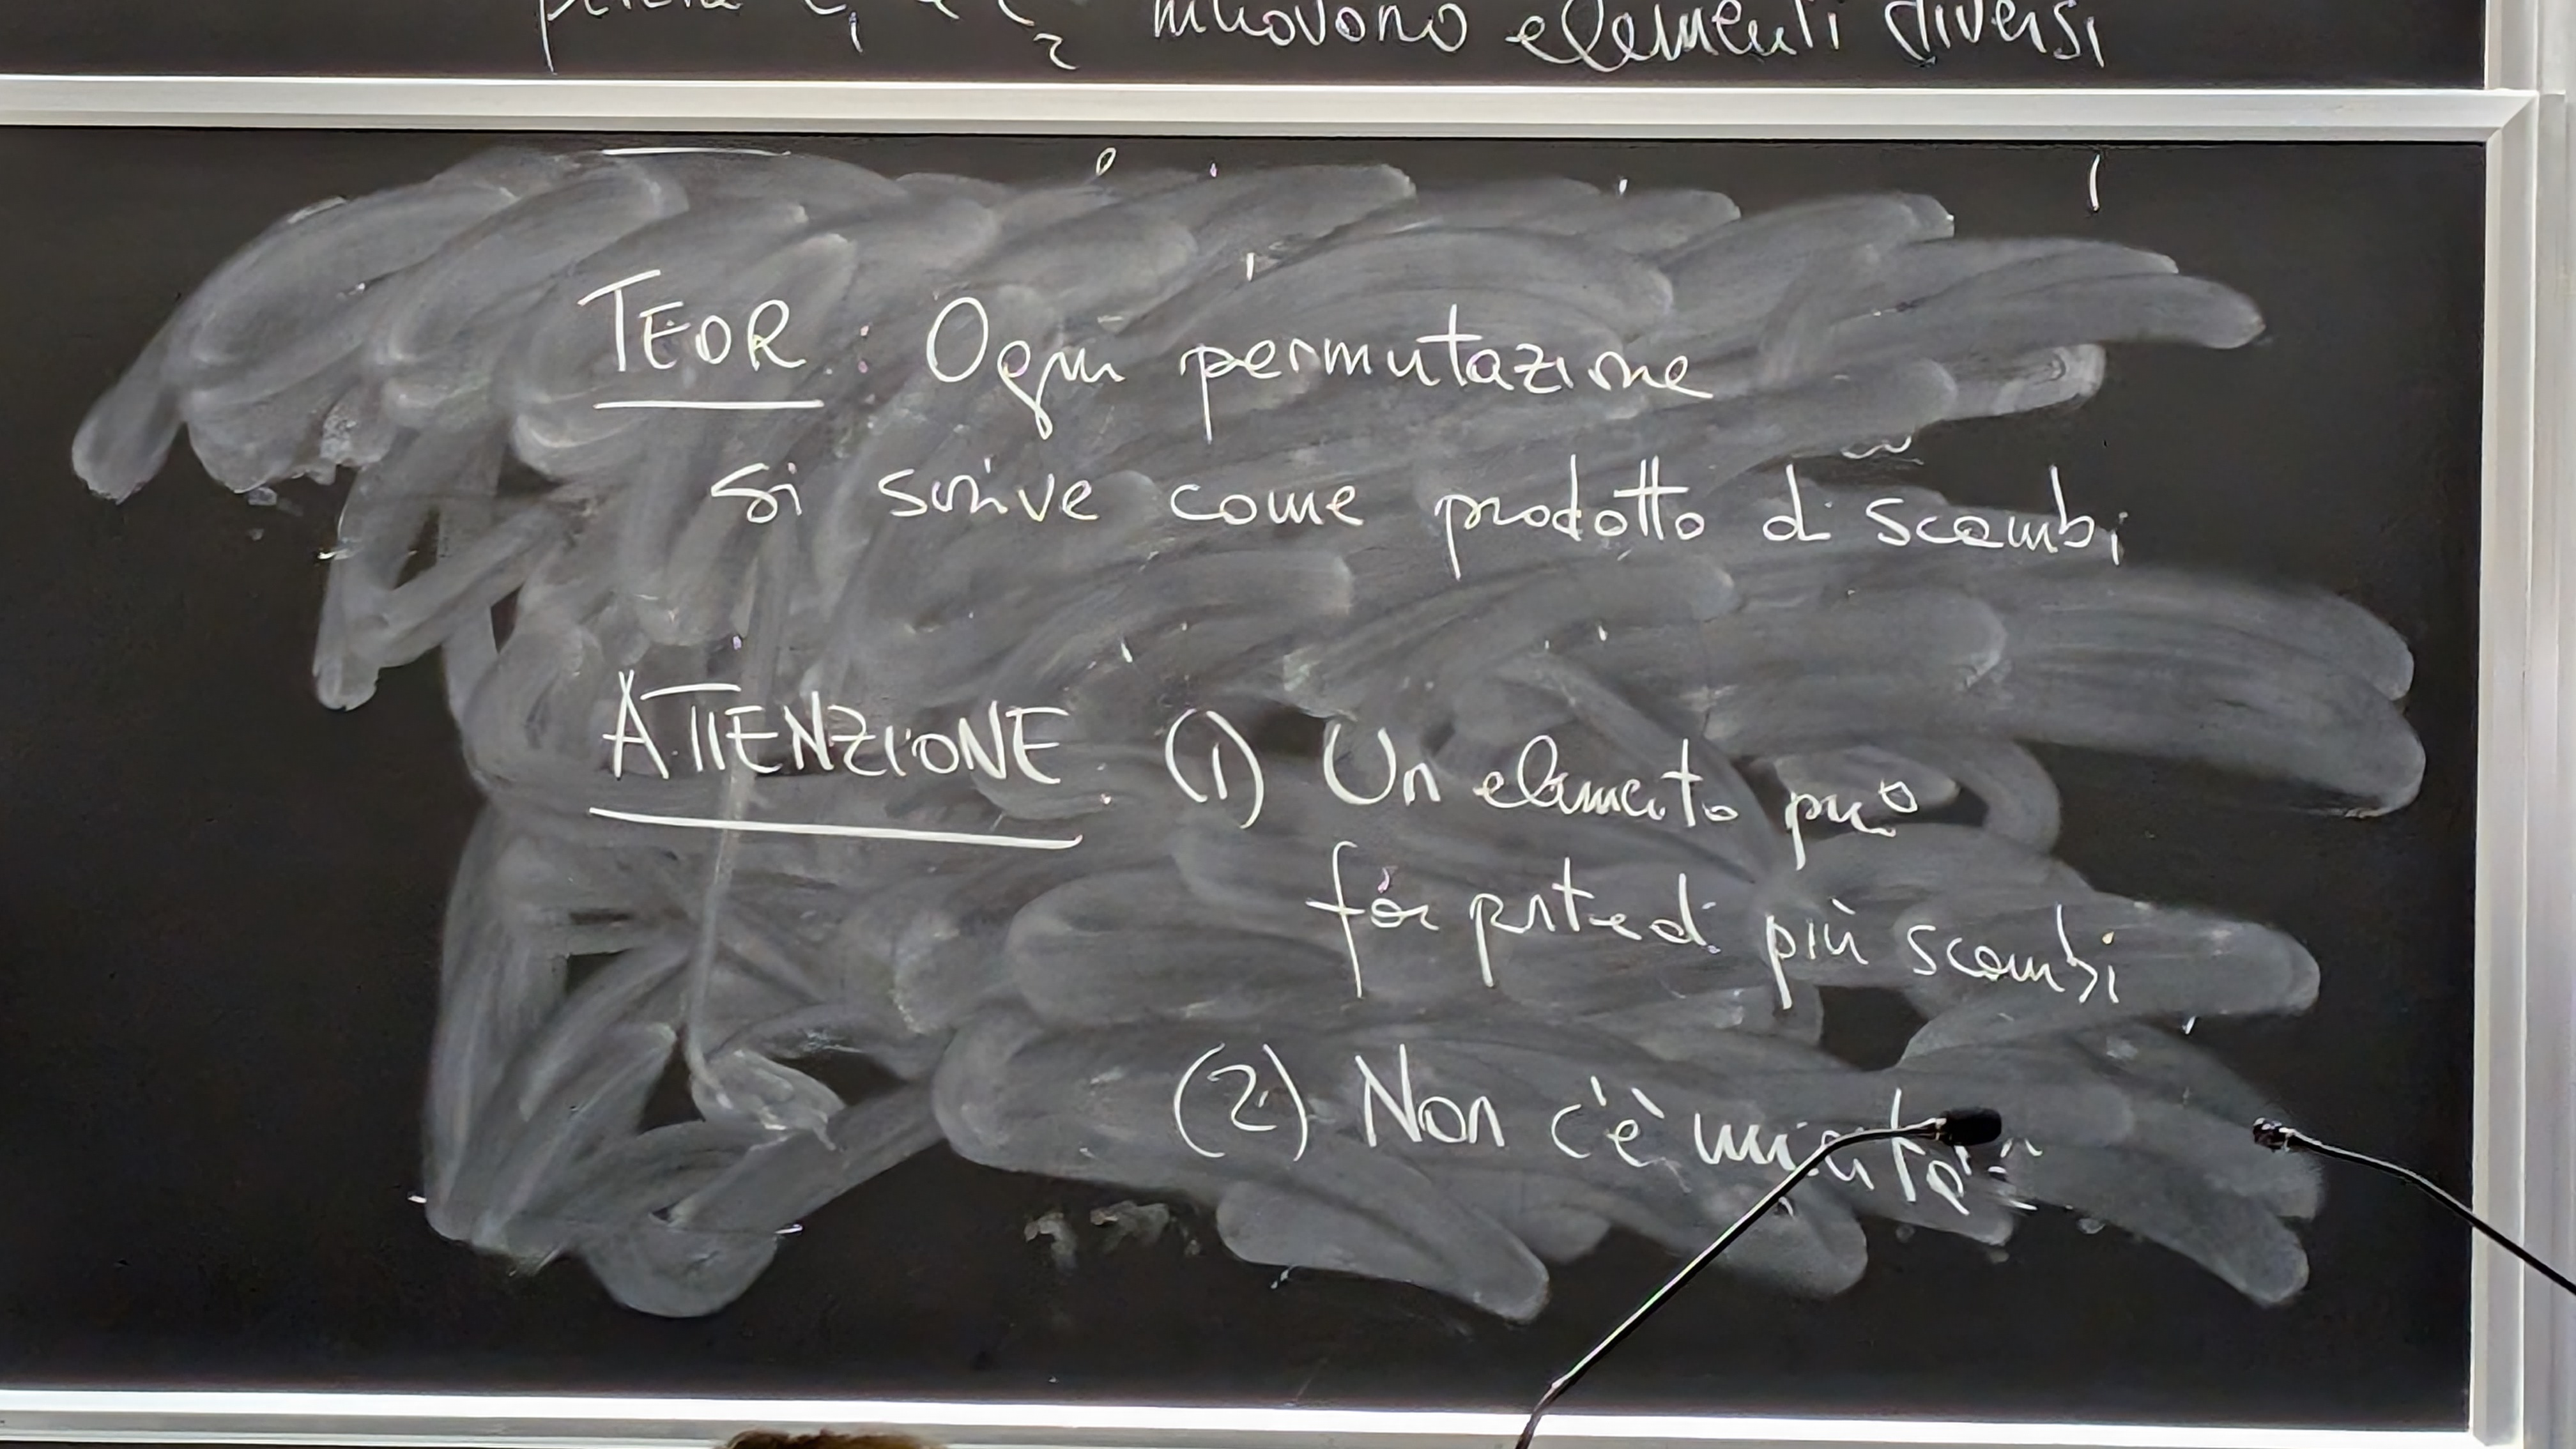 perché c₁ e c₂ muovono elementi diversi
TEOR: Ogni permutazione
si scrive come prodotto di scambi
ATTENZIONE: (1) Un elemento può
far parte di più scambi
(2) Non c'è unicità